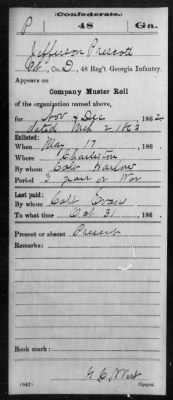 (Confederate.)
P 48 Ga.
Jefferson Prescott
Co. D, 48 Reg't Georgia Infantry.
Appears on
Company Muster Roll
of the organization named above,
for Nov & Dec 1862
dated Mch 2 1863
Enlisted:
When May 17, 186
Where Charleston
By whom Harlow
Period 3 years or War
Last paid:
By whom Capt Evans
To what time Oct 31, 186
Present or absent Present
Remarks:
Book mark:
G. C. West
(642) Copyist.